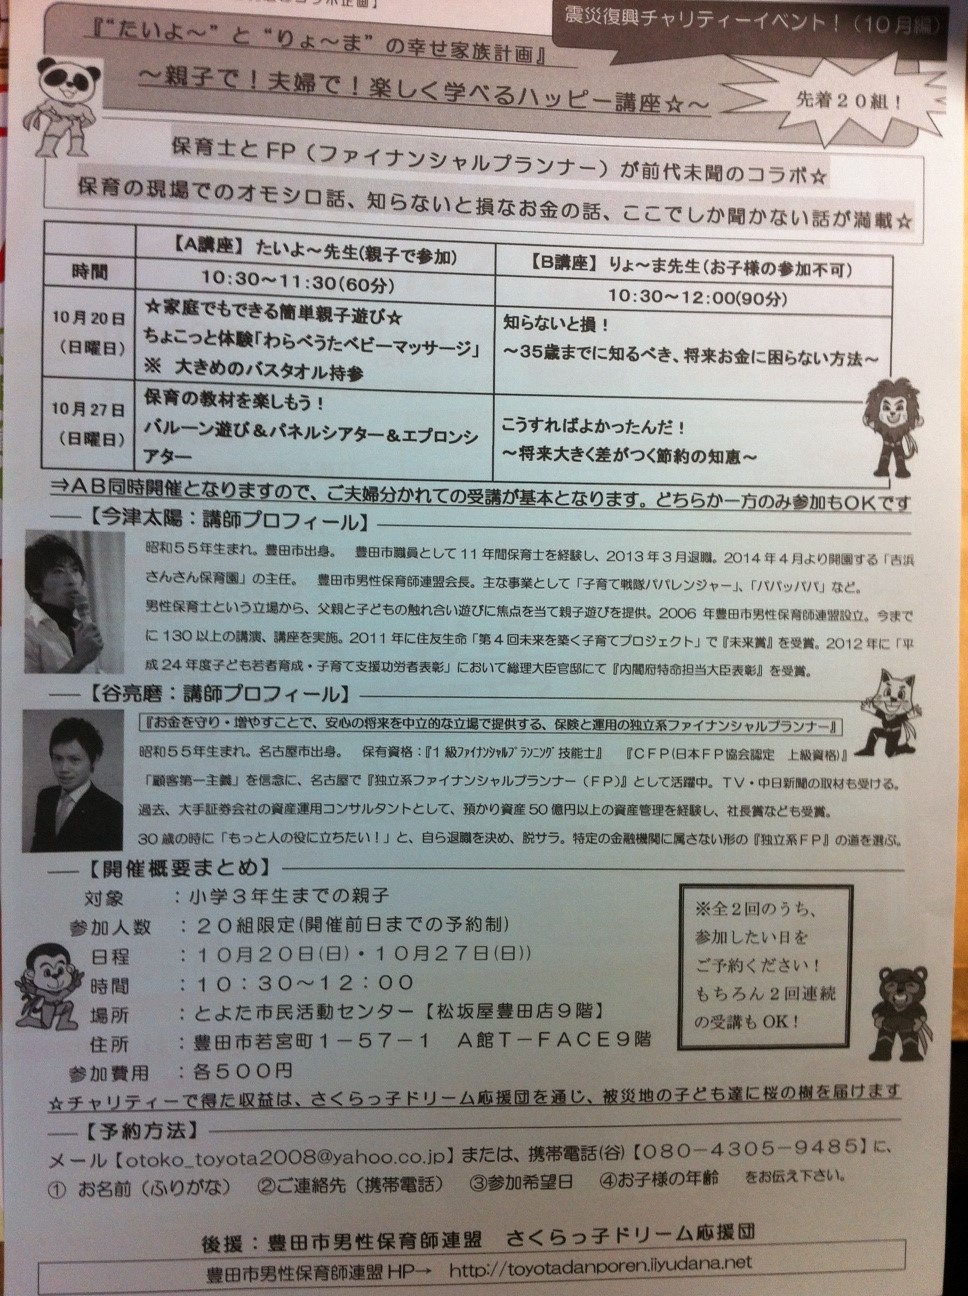 コラボ企画】
震災復興チャリティーイベント！（10月編）
『“たいよ～”と“りょ～ま”の幸せ家族計画』
～親子で！夫婦で！楽しく学べるハッピー講座☆～
先着２０組！
保育士とFP（ファイナンシャルプランナー）が前代未聞のコラボ☆
保育の現場でのオモシロ話、知らないと損なお金の話、ここでしか聞かない話が満載☆
【A講座】たいよ～先生(親子で参加)
【B講座】りょ～ま先生(お子様の参加不可)
時間
10:30～11:30(60分)
10:30～12:00(90分)
10月20日
（日曜日）
☆家庭でもできる簡単親子遊び☆
ちょこっと体験「わらべうたベビーマッサージ」
※　大きめのバスタオル持参
知らないと損！
～35歳までに知るべき、将来お金に困らない方法～
10月27日
（日曜日）
保育の教材を楽しもう！
バルーン遊び＆パネルシアター＆エプロンシ
アター
こうすればよかったんだ！
～将来大きく差がつく節約の知恵～
⇒AB同時開催となりますので、ご夫婦分かれての受講が基本となります。どちらか一方のみ参加もOKです
【今津太陽：講師プロフィール】
昭和５５年生まれ。豊田市出身。　豊田市職員として11年間保育士を経験し、2013年3月退職。2014年4月より開園する「吉浜
さんさん保育園」の主任。　豊田市男性保育師連盟会長。主な事業として「子育て戦隊パパレンジャー」、「パパッパパ」など。
男性保育士という立場から、父親と子どもの触れ合い遊びに焦点を当て親子遊びを提供。2006年豊田市男性保育師連盟設立。今まで
に130以上の講演、講座を実施。2011年に住友生命「第4回未来を築く子育てプロジェクト」で『未来賞』を受賞。2012年に「平
成24年度子ども若者育成・子育て支援功労者表彰」において総理大臣官邸にて『内閣府特命担当大臣表彰』を受賞。
【谷亮磨：講師プロフィール】
『お金を守り・増やすことで、安心の将来を中立的な立場で提供する、保険と運用の独立系ファイナンシャルプランナー』
昭和５５年生まれ。名古屋市出身。　保有資格：『1級ﾌｧｲﾅﾝｼｬﾙﾌﾟﾗﾝﾆﾝｸﾞ技能士』　『CFP(日本FP協会認定　上級資格)』
「顧客第一主義」を信念に、名古屋で『独立系ファイナンシャルプランナー（FP）』として活躍中。TV・中日新聞の取材も受ける。
過去、大手証券会社の資産運用コンサルタントとして、預かり資産50億円以上の資産管理を経験し、社長賞なども受賞。
30歳の時に「もっと人の役に立ちたい！」と、自ら退職を決め、脱サラ。特定の金融機関に属さない形の『独立系FP』の道を選ぶ。
【開催概要まとめ】
対象　：小学３年生までの親子
参加人数　：２０組限定(開催前日までの予約制)
日程　：１０月２０日(日)・１０月２７日(日))
時間　：１０：３０～１２：００
場所　：とよた市民活動センター【松坂屋豊田店９階】
住所　：豊田市若宮町１－５７－１　Ａ館Ｔ－ＦＡＣＥ９階
参加費用　：各５００円
※全２回のうち、
参加したい日を
ご予約ください！
もちろん２回連続
の受講もOK！
☆チャリティーで得た収益は、さくらっ子ドリーム応援団を通じ、被災地の子ども達に桜の樹を届けます
【予約方法】
メール【otoko_toyota2008@yahoo.co.jp】または、携帯電話(谷)【080－4305－9485】に、
①　お名前（ふりがな）　②ご連絡先（携帯電話）　③参加希望日　④お子様の年齢　をお伝え下さい。
後援：豊田市男性保育師連盟　さくらっ子ドリーム応援団
豊田市男性保育師連盟HP→　http://toyotadanporen.iiyudana.net